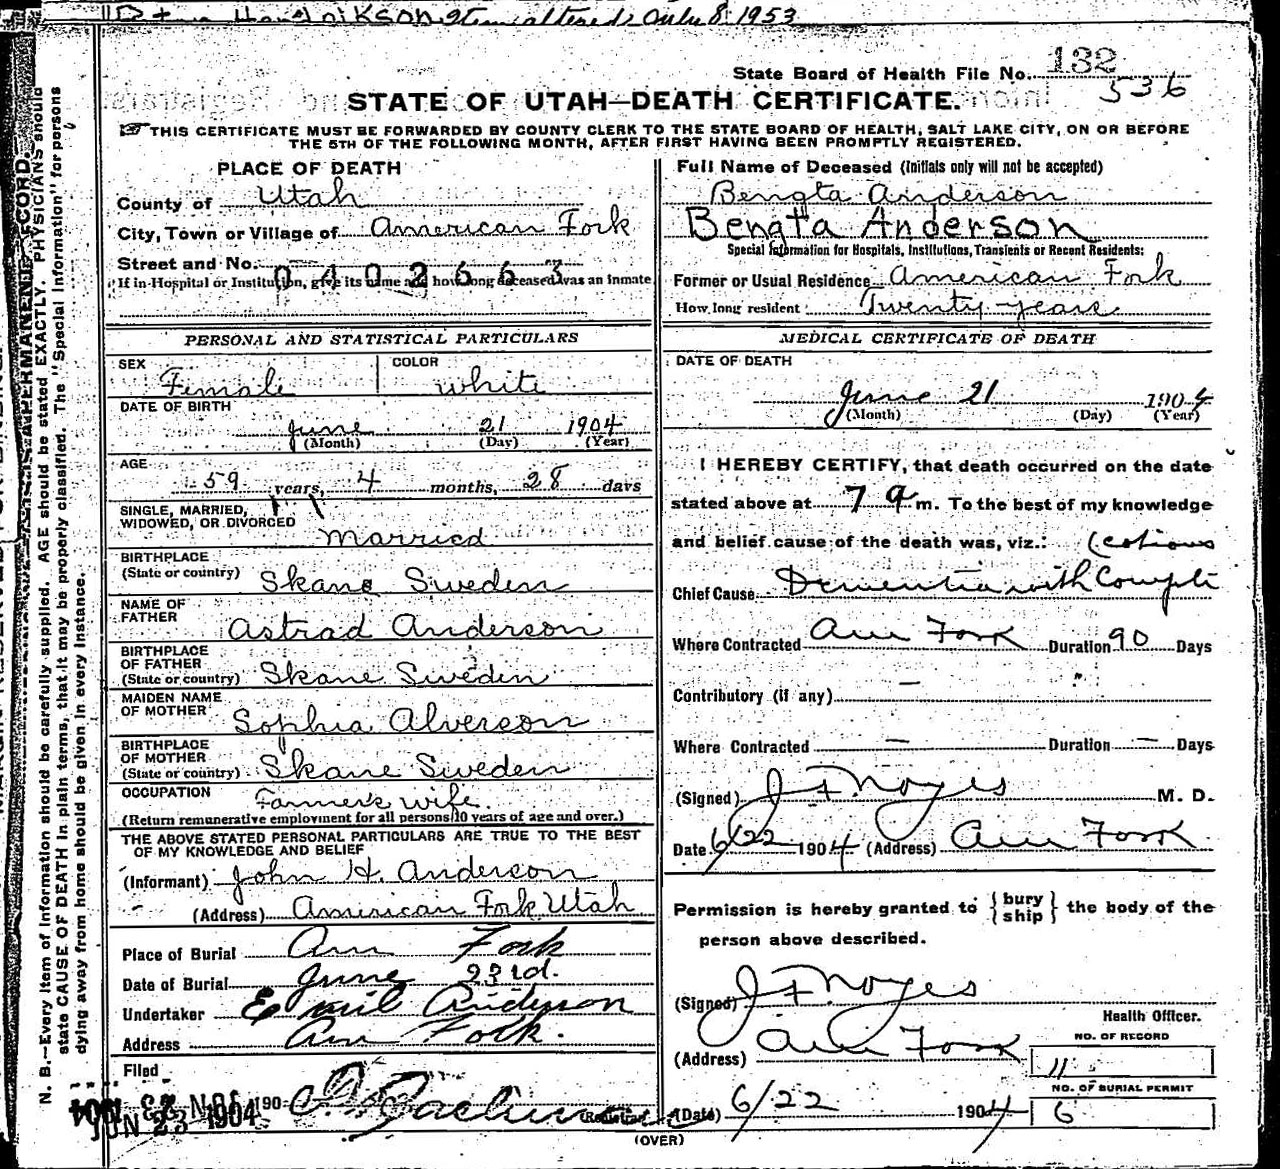 Item altered July 8, 1953
State Board of Health File No. 132
536
STATE OF UTAH—DEATH CERTIFICATE.
☞ THIS CERTIFICATE MUST BE FORWARDED BY COUNTY CLERK TO THE STATE BOARD OF HEALTH, SALT LAKE CITY, ON OR BEFORE
THE 5TH OF THE FOLLOWING MONTH, AFTER FIRST HAVING BEEN PROMPTLY REGISTERED.
PLACE OF DEATH
County of Utah
City, Town or Village of American Fork
Street and No.
0402663
If in Hospital or Institution, give its name and how long deceased was an inmate
PERSONAL AND STATISTICAL PARTICULARS
SEX Female COLOR white
DATE OF BIRTH
June 21 1904
(Month) (Day) (Year)
AGE
59 years, 4 months, 28 days
SINGLE, MARRIED,
WIDOWED, OR DIVORCED
Married
BIRTHPLACE
(State or country) Skane Sweden
NAME OF
FATHER Astrad Anderson
BIRTHPLACE
OF FATHER
(State or country) Skane Sweden
MAIDEN NAME
OF MOTHER Sophia Alverson
BIRTHPLACE
OF MOTHER
(State or country) Skane Sweden
OCCUPATION Farmer's wife
(Return remunerative employment for all persons 10 years of age and over.)
THE ABOVE STATED PERSONAL PARTICULARS ARE TRUE TO THE BEST
OF MY KNOWLEDGE AND BELIEF
(Informant) John H. Anderson
(Address) American Fork Utah
Place of Burial Am Fork
Date of Burial June 23rd.
Undertaker Emil Anderson
Address Am Fork.
Filed
JUN 23 1904 190
Registrar
Full Name of Deceased (Initials only will not be accepted)
Bengta Anderson
Bengta Anderson
Special Information for Hospitals, Institutions, Transients or Recent Residents:
Former or Usual Residence American Fork
How long resident Twenty years
MEDICAL CERTIFICATE OF DEATH
DATE OF DEATH
June 21 1904
(Month) (Day) (Year)
I HEREBY CERTIFY, that death occurred on the date
stated above at 7 a m. To the best of my knowledge
and belief cause of the death was, viz.: (cations
Chief Cause Dementia with Compli
Where Contracted Am Fork Duration 90 Days
Contributory (if any) —
Where Contracted — Duration — Days
(Signed) J F Noyes M. D.
Date 6/22 1904 (Address) Am Fork
Permission is hereby granted to { bury ship } the body of the
person above described.
(Signed) J F Noyes
Health Officer.
(Address) Am Fork
NO. OF RECORD
11
NO. OF BURIAL PERMIT
6
(Date) 6/22 1904
(OVER)
N. B.—Every item of information should be carefully supplied. AGE should be stated EXACTLY. PHYSICIANS should
state CAUSE OF DEATH in plain terms, that it may be properly classified. The "Special Information" for persons
dying away from home should be given in every instance.